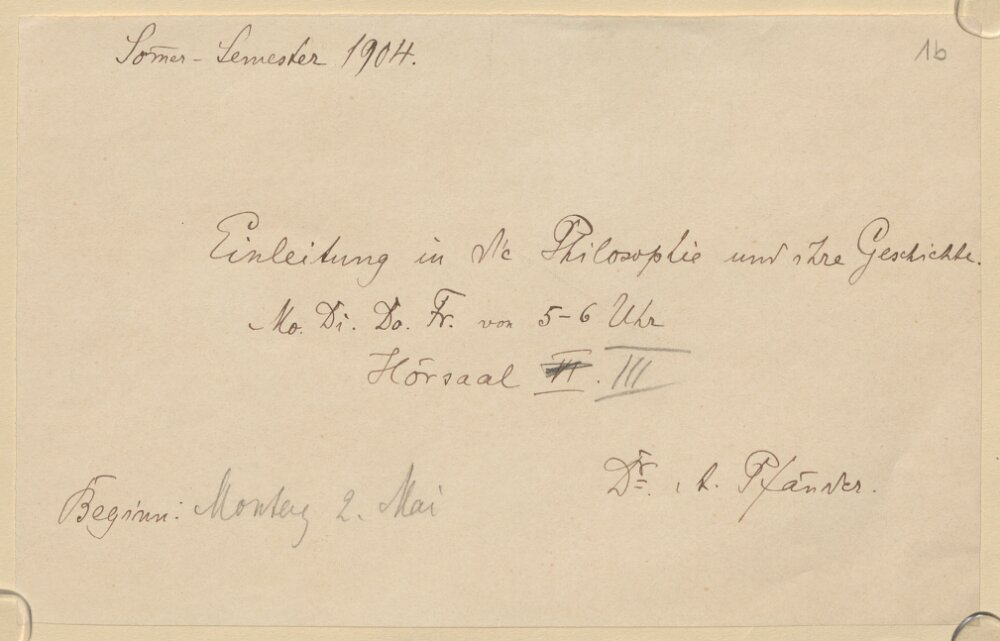 Som̄er-Semester 1904.
1b
Einleitung in die Philosophie und ihre Geschichte.
Mo. Di. Do. Fr. von 5-6 Uhr
Hörsaal VI. III
Dr. A. Pfänder.
Beginn: Montag 2. Mai